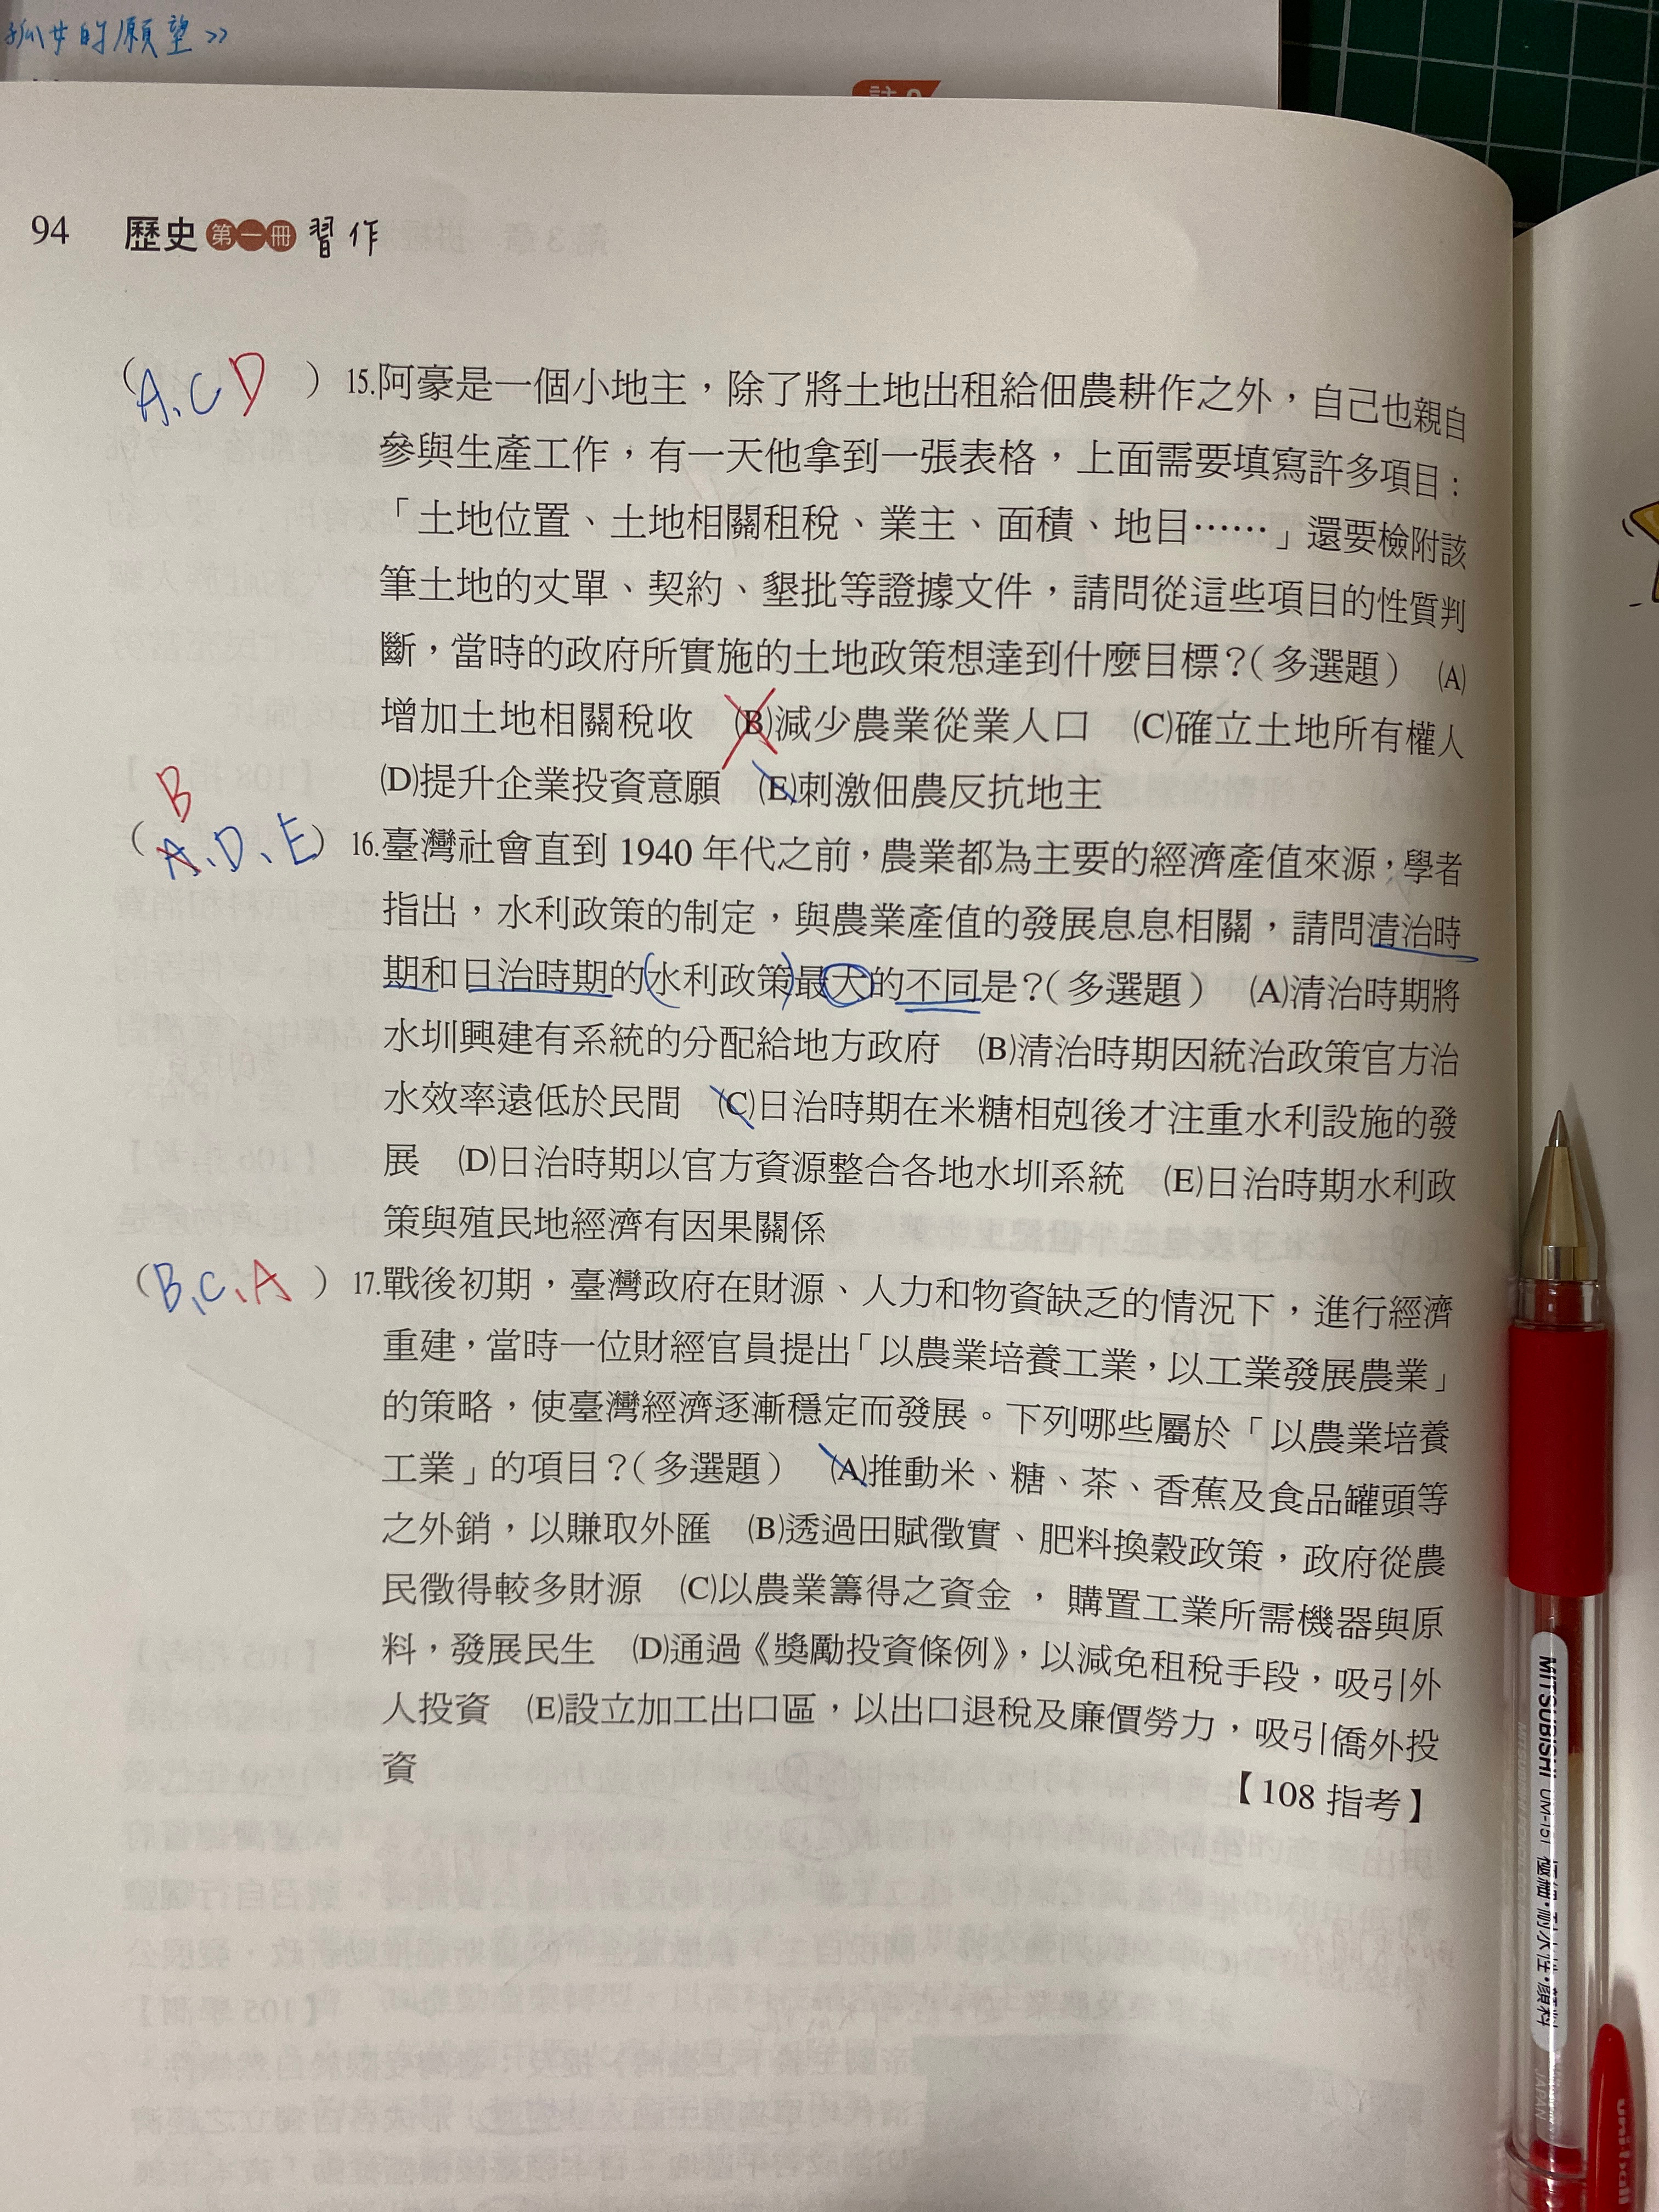 孤女的願望>>
94 歷史第一冊 習作
(A、C D) 15.阿豪是一個小地主，除了將土地出租給佃農耕作之外，自己也親自
參與生產工作，有一天他拿到一張表格，上面需要填寫許多項目：
「土地位置、土地相關租稅、業主、面積、地目……」還要檢附該
筆土地的丈單、契約、墾批等證據文件，請問從這些項目的性質判
斷，當時的政府所實施的土地政策想達到什麼目標？（多選題） (A)
增加土地相關稅收 (B)減少農業從業人口 (C)確立土地所有權人
(D)提升企業投資意願 (E)刺激佃農反抗地主
B
(A、D、E) 16.臺灣社會直到 1940 年代之前，農業都為主要的經濟產值來源，學者
指出，水利政策的制定，與農業產值的發展息息相關，請問清治時
期和日治時期的(水利政策)最大的不同是？（多選題） (A)清治時期將
水圳興建有系統的分配給地方政府 (B)清治時期因統治政策官方治
水效率遠低於民間 (C)日治時期在米糖相剋後才注重水利設施的發
展 (D)日治時期以官方資源整合各地水圳系統 (E)日治時期水利政
策與殖民地經濟有因果關係
(B、C、A) 17.戰後初期，臺灣政府在財源、人力和物資缺乏的情況下，進行經濟
重建，當時一位財經官員提出「以農業培養工業，以工業發展農業」
的策略，使臺灣經濟逐漸穩定而發展。下列哪些屬於「以農業培養
工業」的項目？（多選題） (A)推動米、糖、茶、香蕉及食品罐頭等
之外銷，以賺取外匯 (B)透過田賦徵實、肥料換穀政策，政府從農
民徵得較多財源 (C)以農業籌得之資金，購置工業所需機器與原
料，發展民生 (D)通過《獎勵投資條例》，以減免租稅手段，吸引外
人投資 (E)設立加工出口區，以出口退稅及廉價勞力，吸引僑外投
資
【108 指考】
MITSUBISHI UM-151 極細・耐水性・顔料
JAPAN
uni-ball